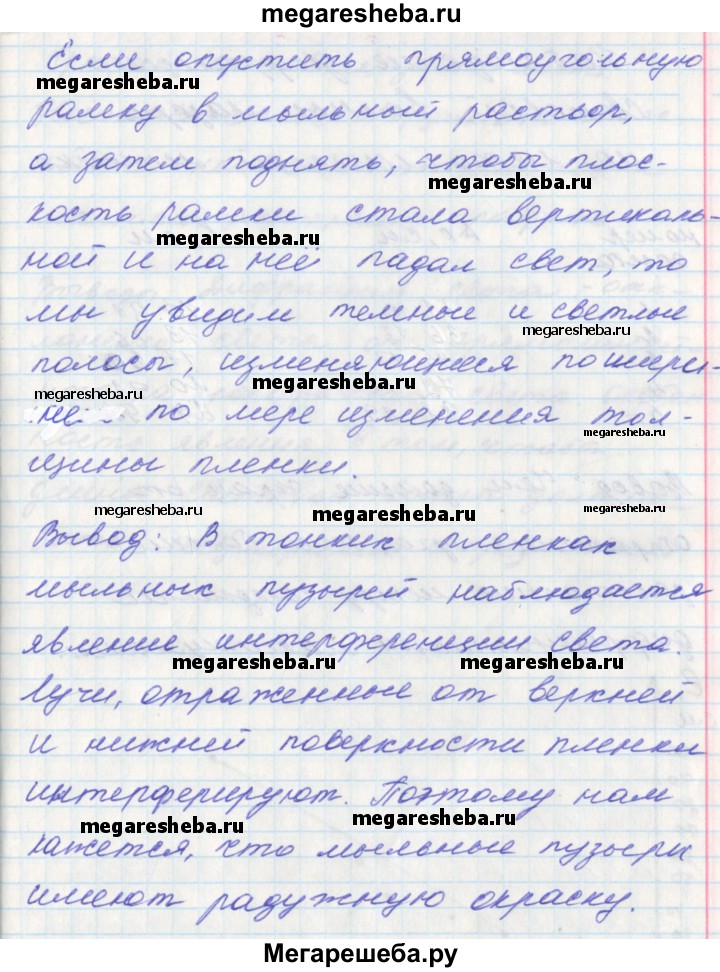 megaresheba.ru
Если опустить прямоугольную
megaresheba.ru
рамку в мыльный раствор,
а затем поднять, чтобы плос-
megaresheba.ru
кость рамки стала вертикаль-
megaresheba.ru
ной и на ней падал свет, то
мы увидим темные и светлые
megaresheba.ru
полосы, изменяющиеся по шири-
megaresheba.ru
megaresheba.ru
не по мере изменения тол-
megaresheba.ru
щины пленки.
megaresheba.ru
megaresheba.ru
megaresheba.ru
Вывод: В тонких пленках
мыльных пузырей наблюдается
явление интерференции света.
megaresheba.ru
megaresheba.ru
Лучи, отраженные от верхней
и нижней поверхности пленки
интерферируют. Поэтому нам
megaresheba.ru
megaresheba.ru
кажется, что мыльные пузыри
имеют радужную окраску.
Мегарешеба.ру